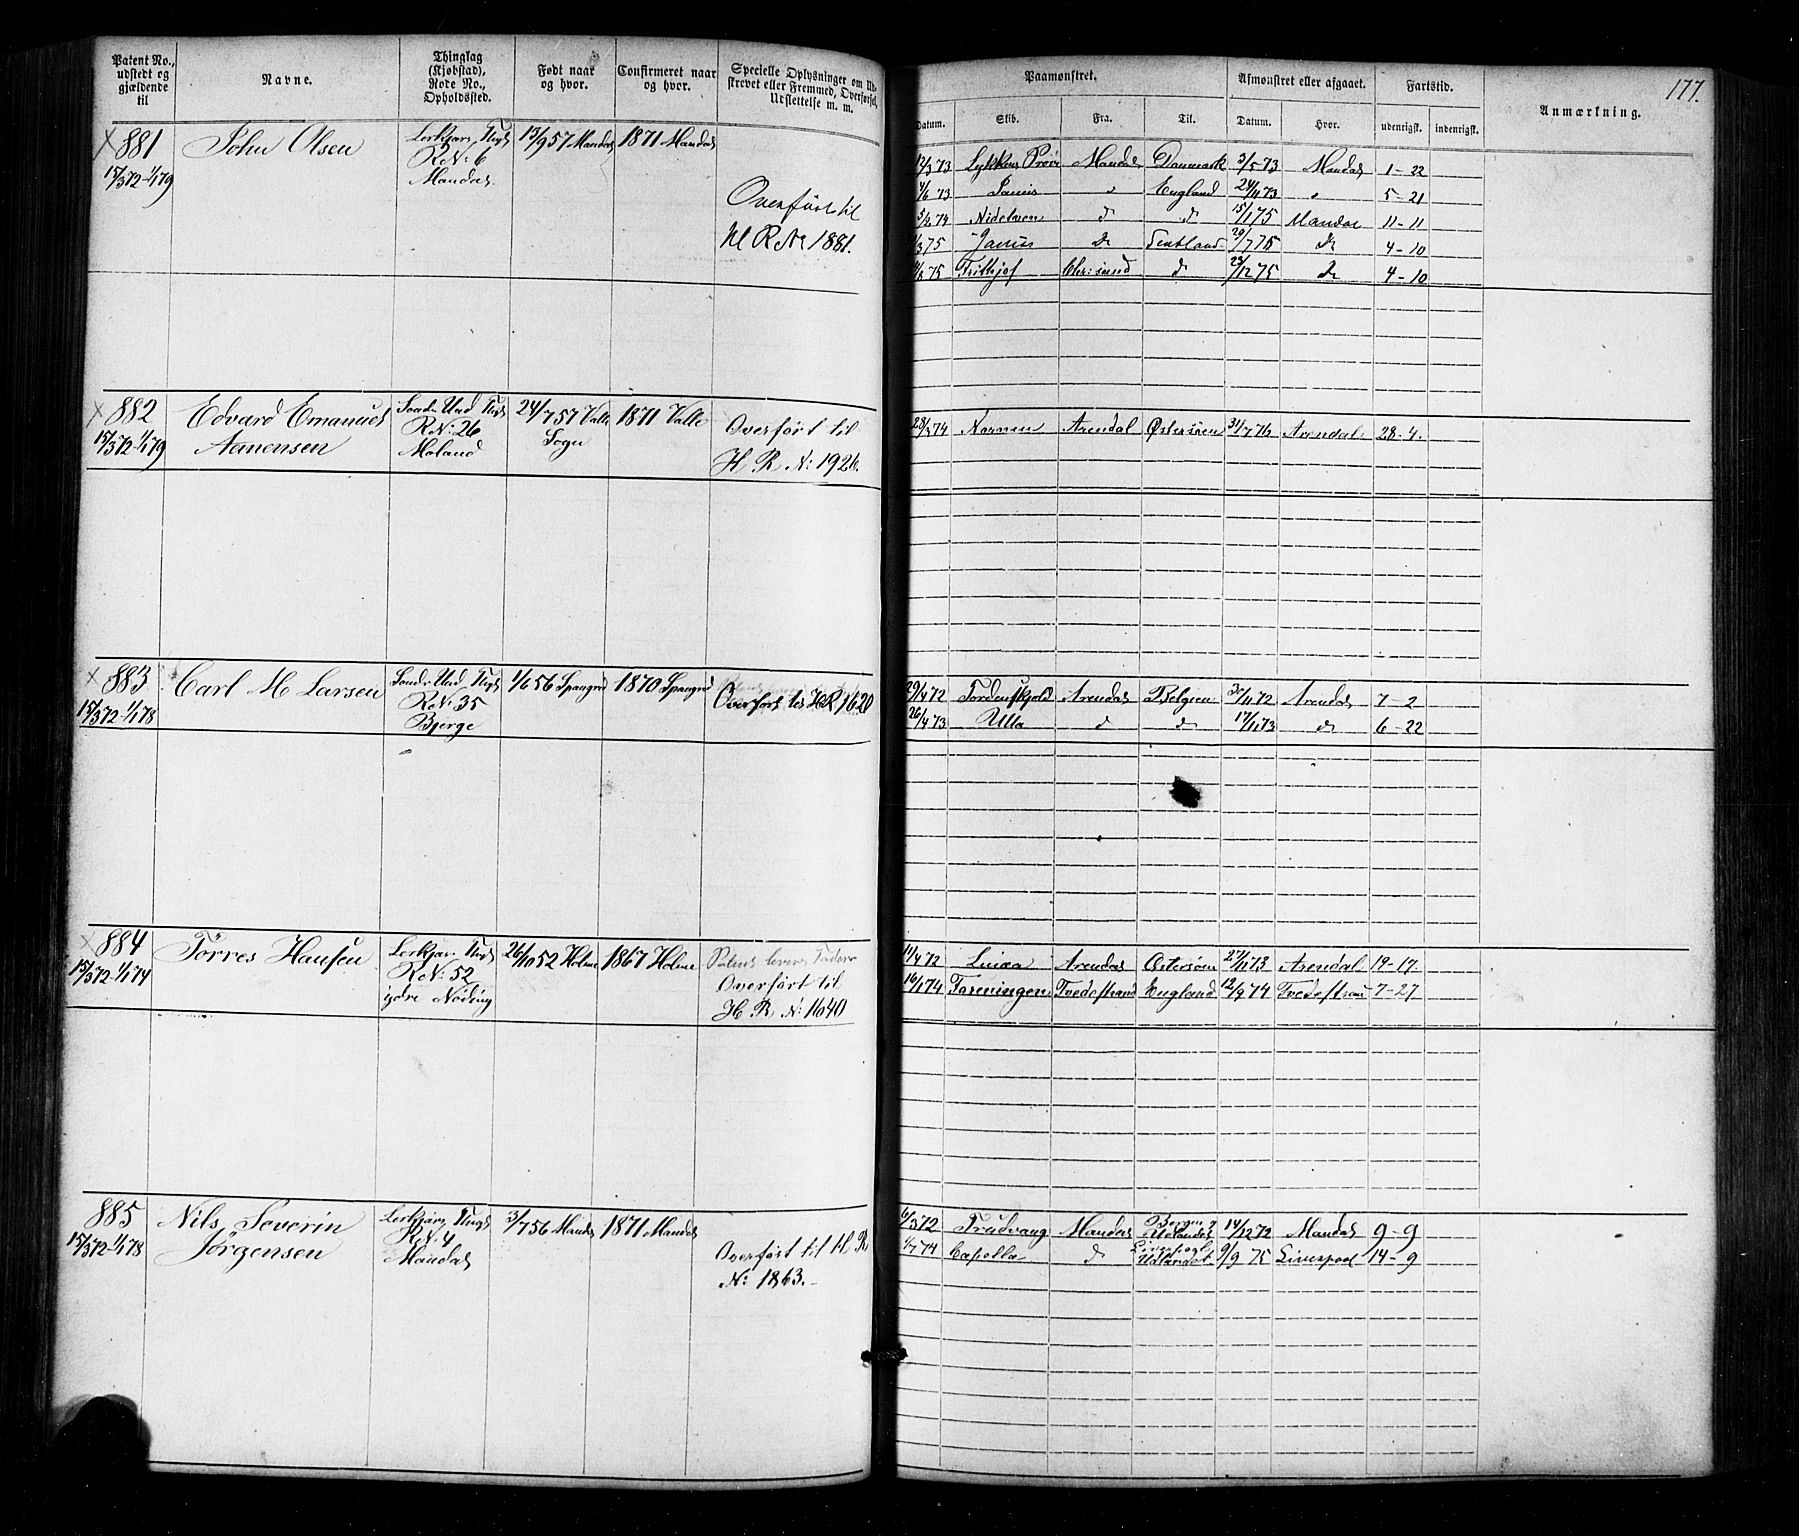 Patent No., udstedt og gjældende til
Navne.
Thinglag (Kjøbstad), Rode No., Opholdssted.
Født naar og hvor.
Confirmeret naar og hvor.
Specielle Oplysninger om Ud-
skrevet eller Fremmed, Overførsel,
Udslettelse m. m.
881
15/3 72-1/1 79
John Olsen
R.N: 6
Mandal
13/9 57 Mandal
1871 Mandal
Overført til
HR No 1881.
882
15/3 72-1/1 79
Edvard Emanuel
Aanensen
R.N: 26
Moland
24/7 57 Valle
Sogn
1871 Valle
Overført til
H R N: 1926.
883
15/3 72-1/1 78
Carl M Larsen
R.N: 35
Bjerge
1/6 56 Spangrd
1870 Spangrd
Overført til HR 1620
884
15/3 72-1/1 74
Törres Hansen
R.N: 52
ydre Nöding
26/10 52 Holme
1867 Holme
Overført til
H R N: 1640
885
15/3 72-1/1 78
Nils Severin
Jörgensen
R.N. 4
Mandal
3/7 56 Mandal
1871 Mandal
Overført til H R
N: 1863.
177.
Paamønstret.
Afmønstret eller afgaaet.
Fartstid.
Anmærkning.
Datum. Skib. Fra. Til. Datum. Hvor. udenrigsk. indenrigsk.
12/3 73 Lykkens Prøve Mandal Danmark 3/5 73 Mandal 1-22
/6 73 Janus " England 24/11 73 " 5-21
5/2 74 Nidelven d d 15/1 75 Mandal 11-11
/3 75 Janus do Skotland 29/7 75 do 4-10
/8 75 Frithjof Chr:sund d 23/12 75 do 4-10
28/3 74 Nornen Arendal Østersöen 31/7 76 Arendal 28-4.
29/4 72 Tordenskjold Arendal Belgien 30/11 72 Arendal 7-2
26/4 73 Ulla d d 17/11 73 d 6-22
11/4 72 Arendal Østersöen 27/11 73 Arendal 19-17.
16/1 74 Foreningen Tvedestrand England 12/9 74 Tvedestrand 7-27
6/3 72 Trudvang Mandal Bergen & Udlandet 14/12 72 Mandal 9-9
1/7 74 Capella d Liverpool Udlandet 9/9 75 Liverpool 14-9